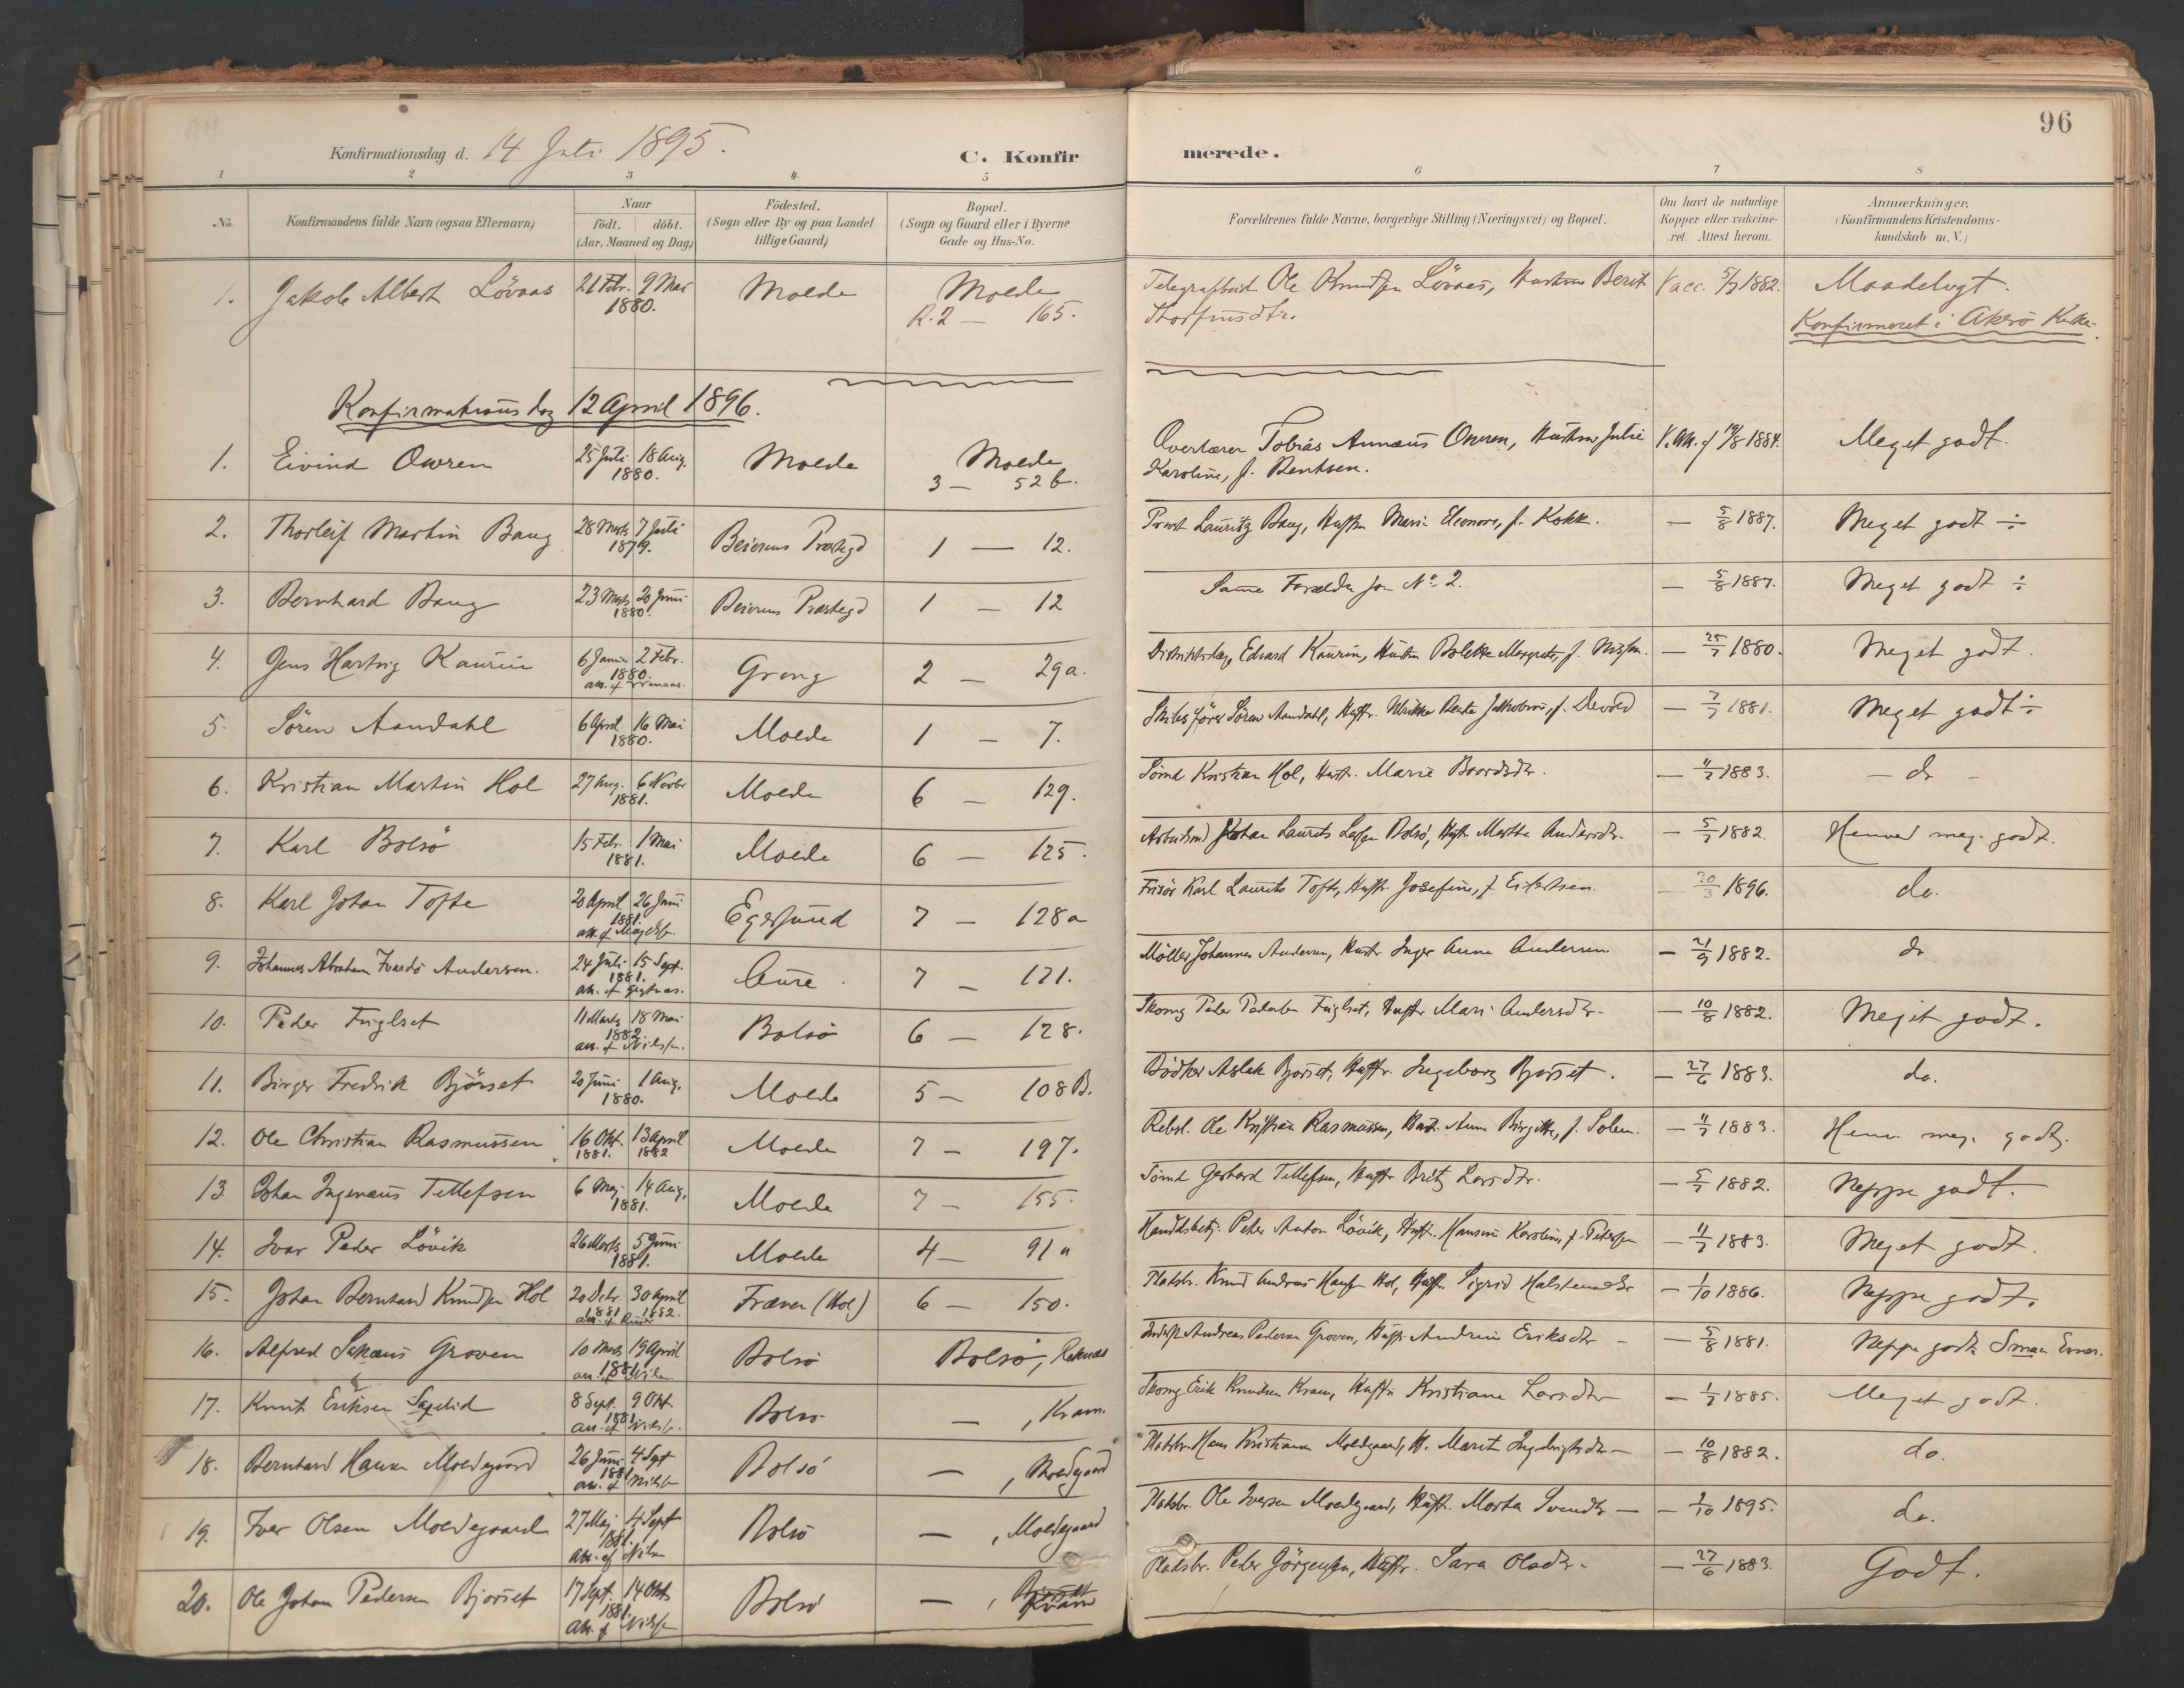 96
Konfirmationsdag d. 14 Juli 1895.
C. Konfirmerede.
1 2 3 4 5 6 7 8
No. Konfirmandens fulde Navn (ogsaa Efternavn) Naar födt. döbt. (Aar, Maaned og Dag) Födested. (Sogn eller By og paa Landet tillige Gaard) Bopæl. (Sogn og Gaard eller i Byerne Gade og Hus-No. Forældrenes fulde Navne, borgerlige Stilling (Næringsvei) og Bopæl. Om havt de naturlige Kopper eller vakcineret. Attest herom. Anmærkninger. (Konfirmandens Kristendomskundskab m. V.)
1. Jakob Albert Lövaas 21 Febr. 9 Mai 1880. Molde Molde R. 2 — 165. Ole Knudsen Lövaas, Hustru Berit Thorfinsdtr. Vacc. 5/7 1882. Maadeligt. Konfirmeret i Akerö Kirke.
Konfirmationsdag 12 April 1896.
1. Eivind Owren 25 Juli 18 Aug. 1880. Molde Molde 3 — 52 b. Overlærer Tobias Annæus Owren, Hustru Julie Karoline, f. Bentsen. 1884. Meget godt.
2. Thorleif Martin Baug 28 Marts 7 Juli 1879. Beierens Præstegd 1 — 12. Provst Lauritz Baug, Hustru Maria Eleonore, f. Kokk. — 5/8 1887. Meget godt ÷
3. Bernhard Baug 23 Marts 20 Juni 1880. Beierens Præstegd 1 — 12 Samme Forældre som No 2. — 5/8 1887. Meget godt ÷
4. Jens Hartvig Kaurin 6 Januar 2 Febr. 1880. Grong 2 — 29a. Edvard Kaurin, Hustru Bolette Margrete, f. — 25/7 1880. Meget godt.
5. Sören Aandahl 6 April 16 Mai 1880. Molde 1 — 7. Skibsförer Sören Aandahl, Hustr. Ulrikke Beate Jakobine, f. Devold — 7/7 1881. Meget godt ÷
6. Kristian Martin Hol 27 Aug. 6 Novbr 1881. Molde 6 — 129. Sömd Kristian Hol, Hustr. Marie Baardsdtr. — 11/7 1883. — do —
7. Karl Bolsö 15 Febr. 1 Mai 1881. Molde 6 — 125. Arbeidsmd Johan Laurits Bolsö, Hustr Martha Andersdtr. — 5/7 1882. Henved meg. godt.
8. Karl Johan Tofte 20 April 26 Juni 1881. Egersund 7 — 128a Frisör Karl Laurits Tofte, Hustr. Josefine, f. — 20/3 1896. do.
9. Johannes Abraham Andersen. 24 Juli 15 Sept. 1881. Aure. 7 — 121. Möller Johannes Andersen, Hustr Inger Anna Andersen — 21/9 1882. do
10. Peder Fuglset 11 Marts 18 Mai 1882. Bolsö 6 — 128. Skomg Peder Pedersen Fuglset, Hustr Mari Andersdtr. — 10/8 1882. Meget godt.
11. Birger Fredrik Björset 20 Juni 1 Aug. 1880. Molde 5 — 108 B. Bödker Aslak Bjorset, Hustr. Ingeborg Bjorset. — 27/6 1883. do.
12. Ole Christian Rasmussen 16 Okt. 1881. 13 April 1882 Molde 7 — 197. Rebsl. Ole Kristian Rasmussen, Hust. Anne Birgitte, f. Solem. — 11/7 1883. Henv. meg. godt.
13 Johan Ingemaus Tellefsen 6 Maj 14 Aug. 1881. Molde 7 — 155. Sömd Gerhard Tellefsen, Hustr Brit Larsdtr. — 5/7 1882. Neppe godt.
14. Ivar Peder Lövik 26 Marts 5 Juni 1881. Molde 4 — 91 a Handelsbetj. Peder Anton Lövik, Hustr. Hansine Karoline, f. — 11/7 1883. Meget godt.
15. Johan Bernhard Knudsen Hol 20 1881 30 April 1882. Fræna (Hol) 6 — 150. Pladsbr. Knud Andreas Hol, Hustr. Sigrid Halstensdtr — 1/10 1886. Neppe godt.
16. Alfred Groven 10 Marts 19 April 1881 Bolsö Bolsö, Reknæs Andreas Pedersen Groven, Hustr Eriksdtr — — 5/8 1881. Neppe godt Smaa Evner.
17. Knut Eriksen 8 Sept. 9 Okt. 1881 Bolsö — , Kram. Skomg Erik Knudsen Kram, Hustr Kristiane Larsdtr — 1/7 1885. Meget godt.
18. Bernhard Hansen Moldegaard 26 Juni 4 Sept 1881 Bolsö — , Moldegaard Pladsbr. Hans Kristiansen Moldegaard, H. Marit Ingebrigtsdtr — — 10/8 1882. do.
19. Iver Olsen Moldegaard 27 Maj 4 Sept 1881. Bolsö — , Moldegaard Pladsbr. Ole Iversen Moldegaard, Hustr. Marta — 1895. do.
20. Ole Johan Pedersen Bjorset 17 Sept. 14 Okt 1881. Bolsö — , Bjorset Pladsbr. Peder Jörgensen, Hustr. Sara Olsdtr. — 27/6 1883. Godt.